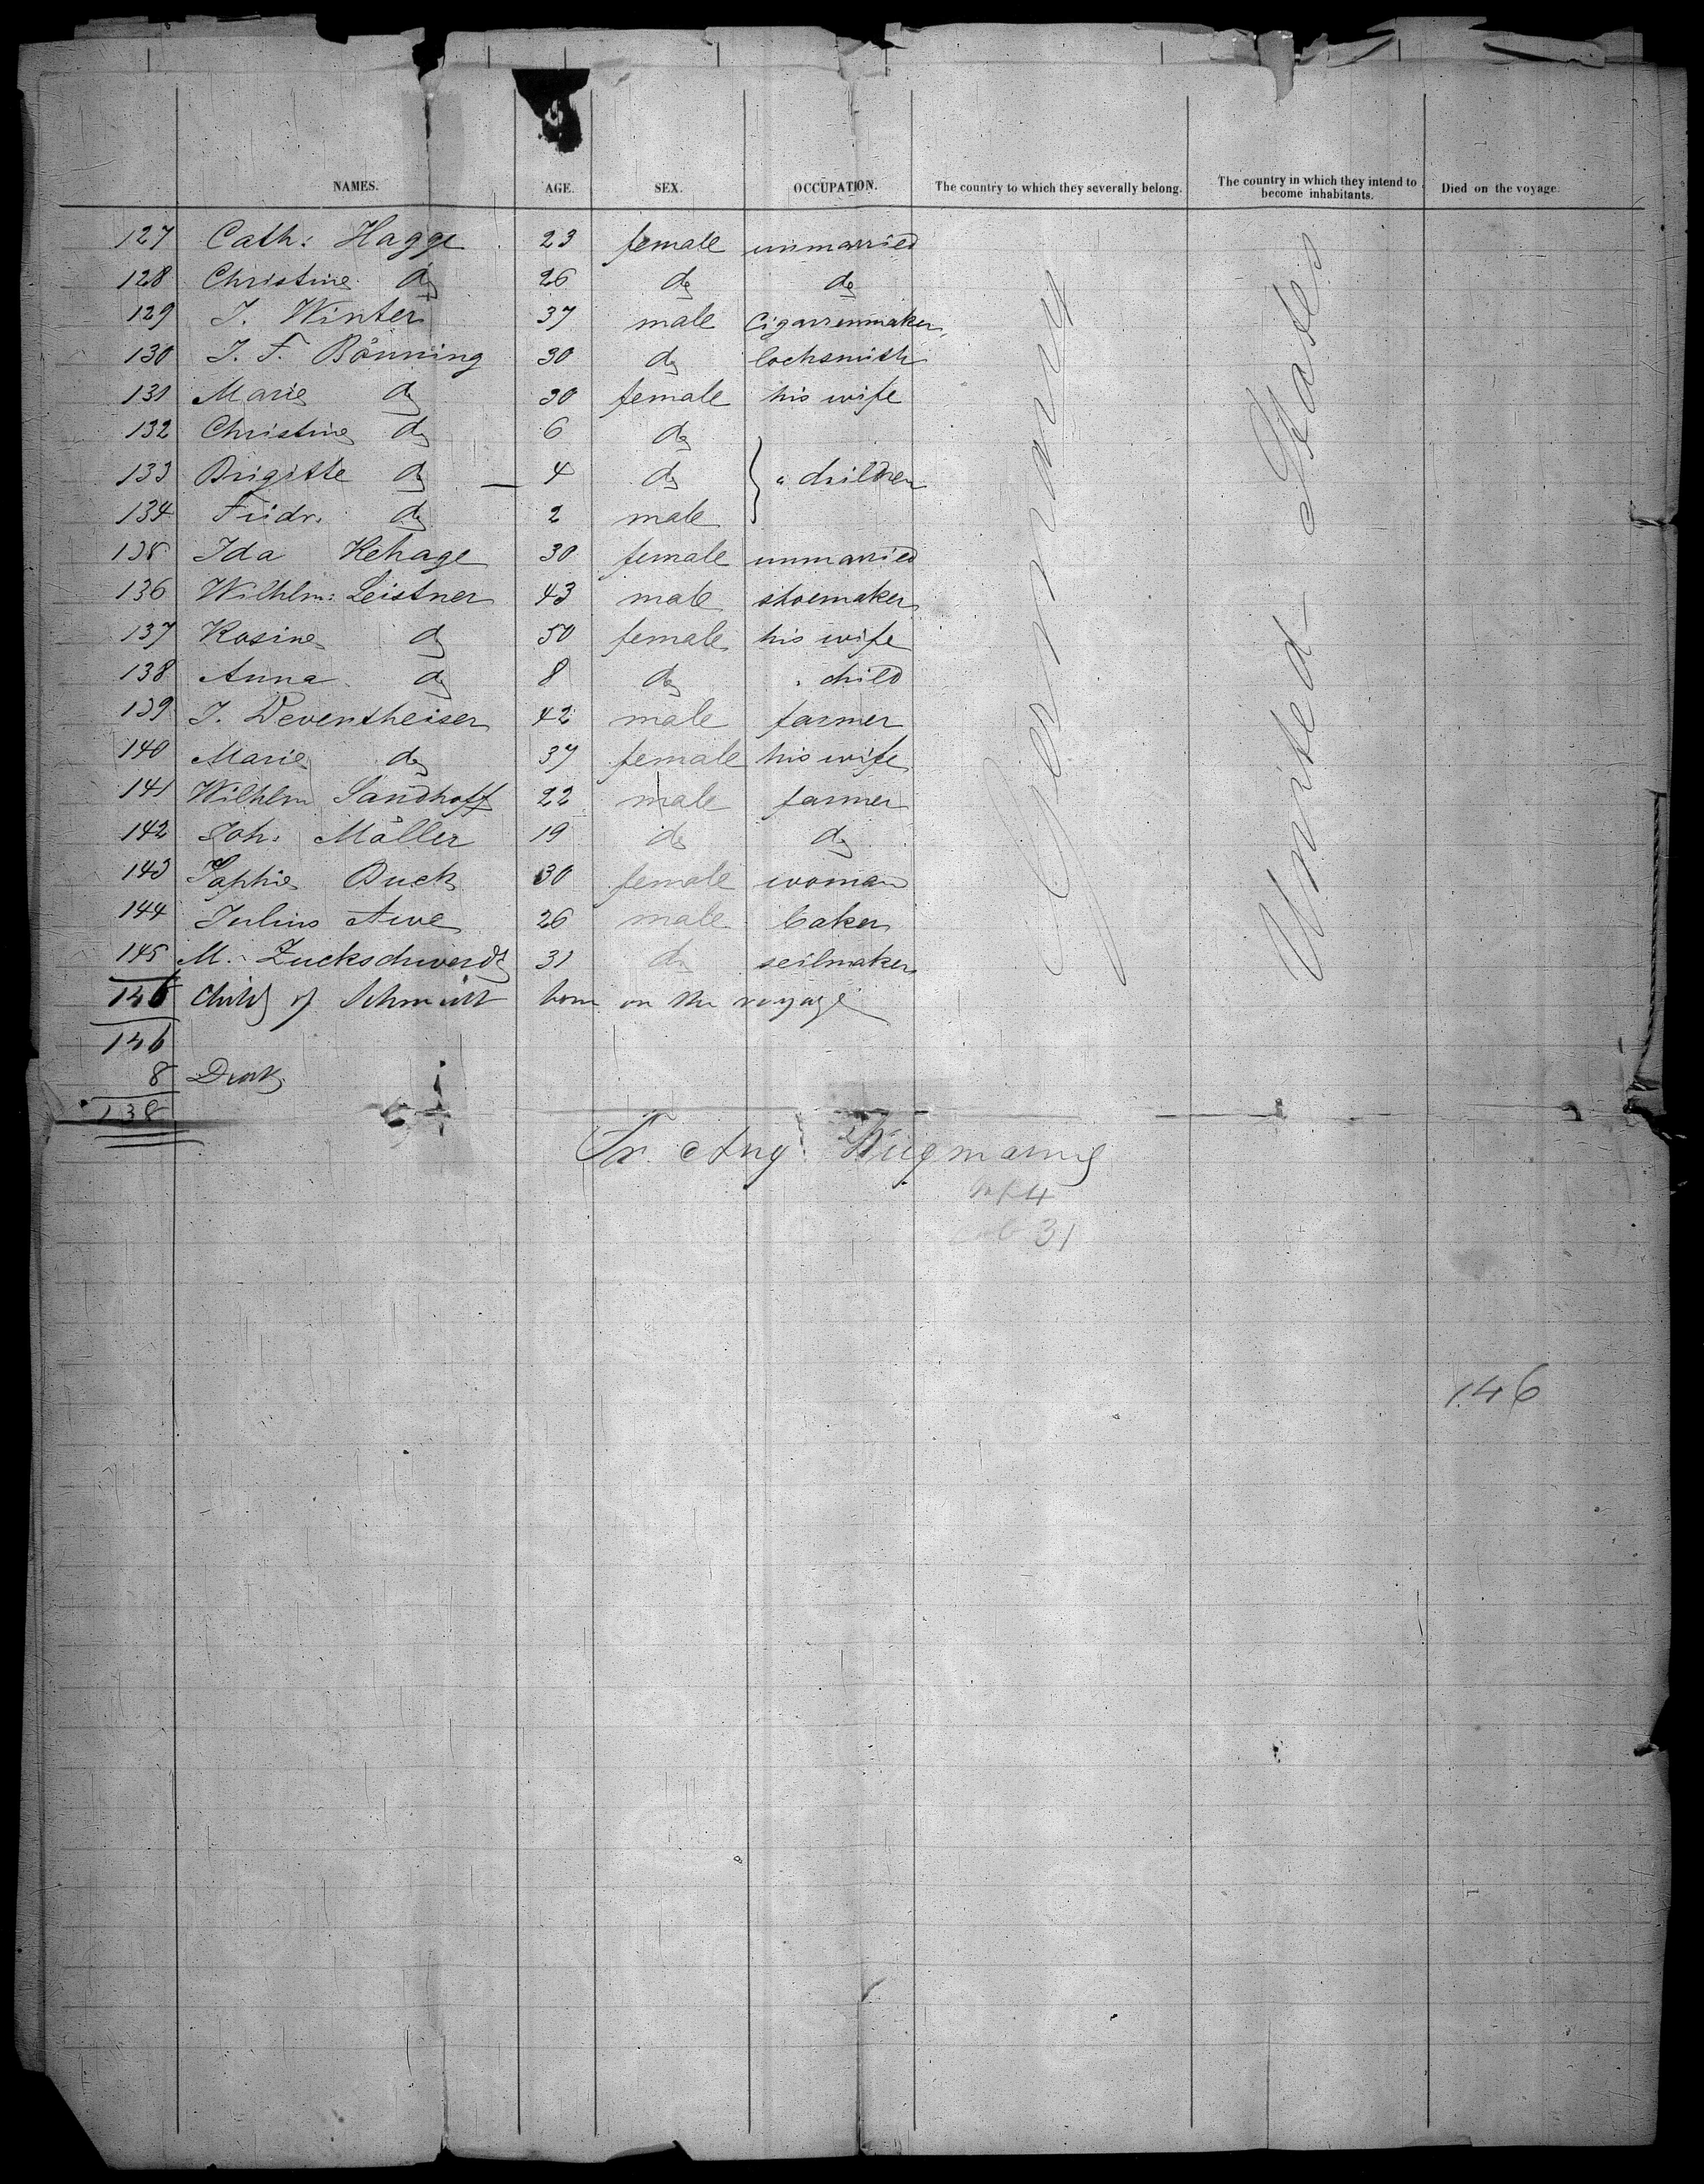 NAMES. AGE. SEX. OCCUPATION. The country to which they severally belong. The country in which they intend to become inhabitants. Died on the voyage.
127 Cath: Hagge 23 female unmarried
128 Christine do 26 do do
129 J. Winter 37 male Cigarrenmaker
130 J. F. Bönning 30 do locksmith
131 Marie do 30 female his wife
132 Christine do 6 do
133 Brigitte do 4 do " children
134 Fridr. do 2 male
135 Ida Kehage 30 female unmarried
136 Wilhlm: Leistner 43 male shoemaker
137 Rosine do 50 female his wife
138 Anna do 8 do " child
139 J. Deventheiser 42 male farmer
140 Marie do 37 female his wife
141 Wilhlm Sandhoff 22 male farmer
142 Joh: Möller 19 do do
143 Sophie Buck 30 female woman
144 Julius Awe 26 male baker
145 M. Zuckschwerdt 31 do seilmaker
146 Child of Schmidt born on the voyage
Germany
United States
146
8
138
Fr. Aug.
4
31
146